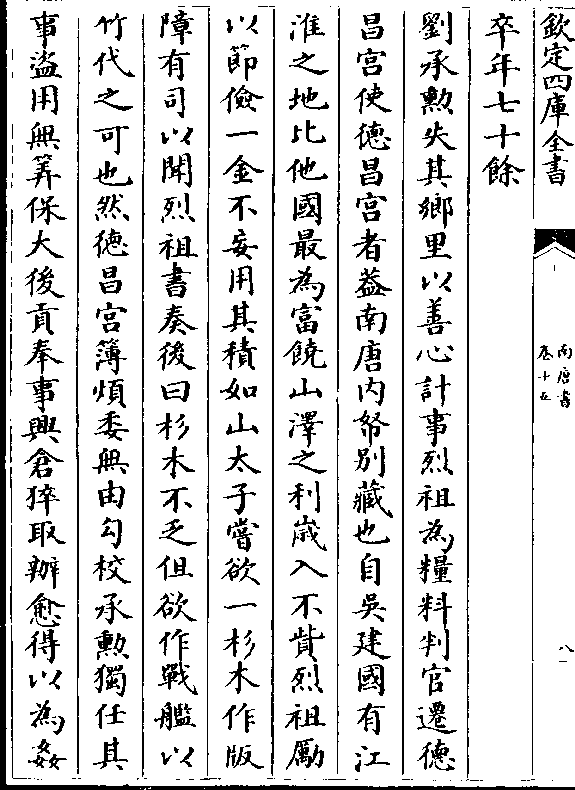 欽定四庫全書
南唐書
卷十五
八
卒年七十餘
劉承勲失其鄉里以善心計事烈祖為糧料判官遷徳
昌宮使徳昌宮者葢南唐内帑别藏也自吳建國有江
淮之地比他國最為富饒山澤之利嵗入不貲烈祖勵
以節儉一金不妄用其積如山太子嘗欲一杉木作版
障有司以聞烈祖書奏後曰杉木不乏但欲作戰艦以
竹代之可也然徳昌宮簿煩委無由勾校承勲獨任其
事盜用無筭保大後貢奉事興倉猝取辦愈得以為姦